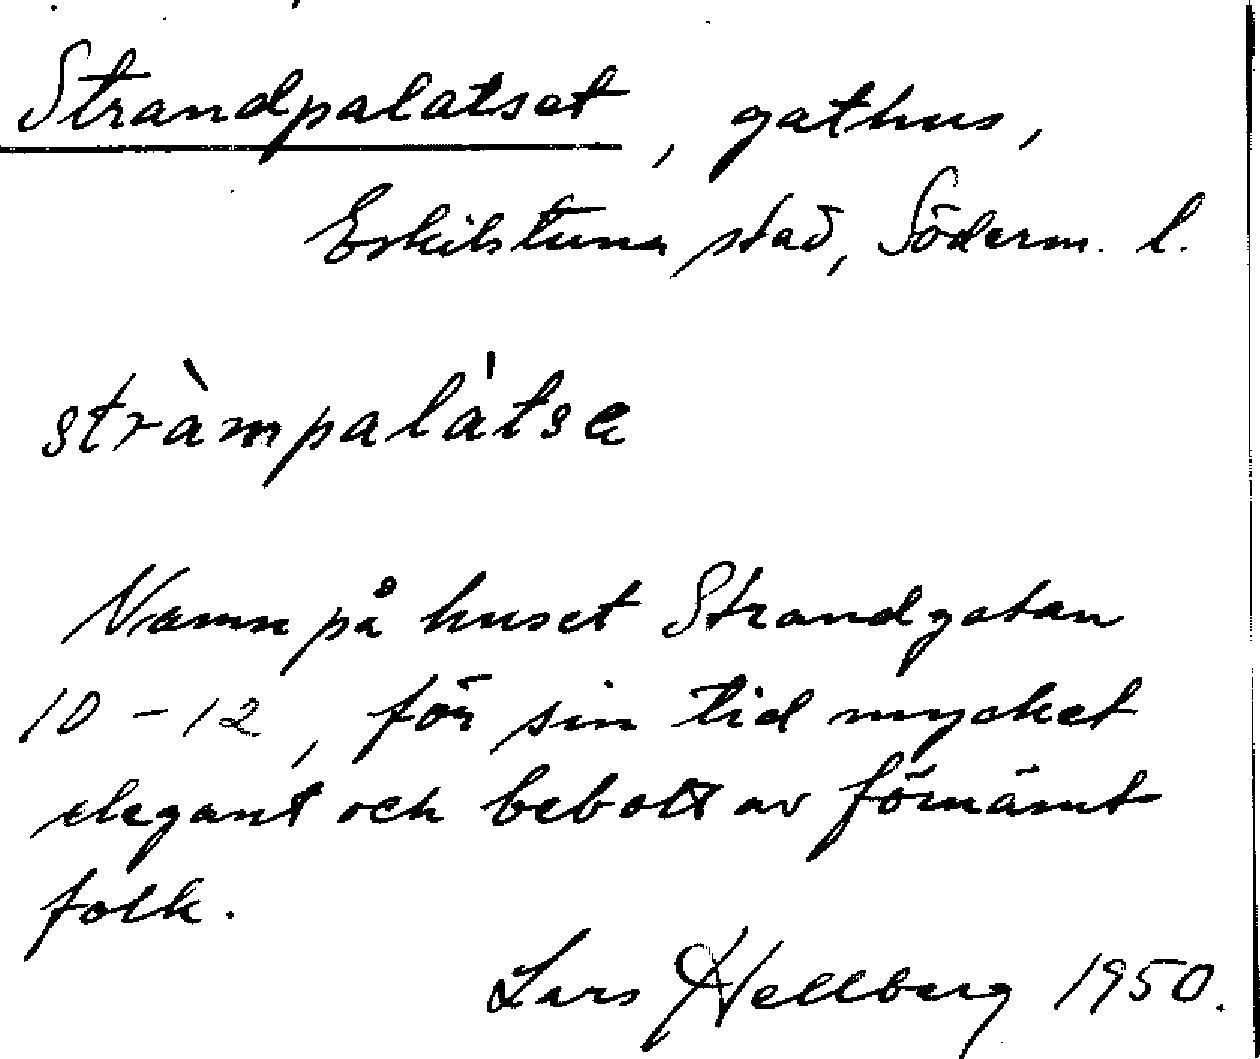 Strandpalatset, gathus,
Eskilstuna stad, Söderm. l.
stràmpalátse
Namn på huset Strandgatan
10-12, för sin tid mycket
elegant och bebott av förnämt
folk.
Lars Hellberg 1950.